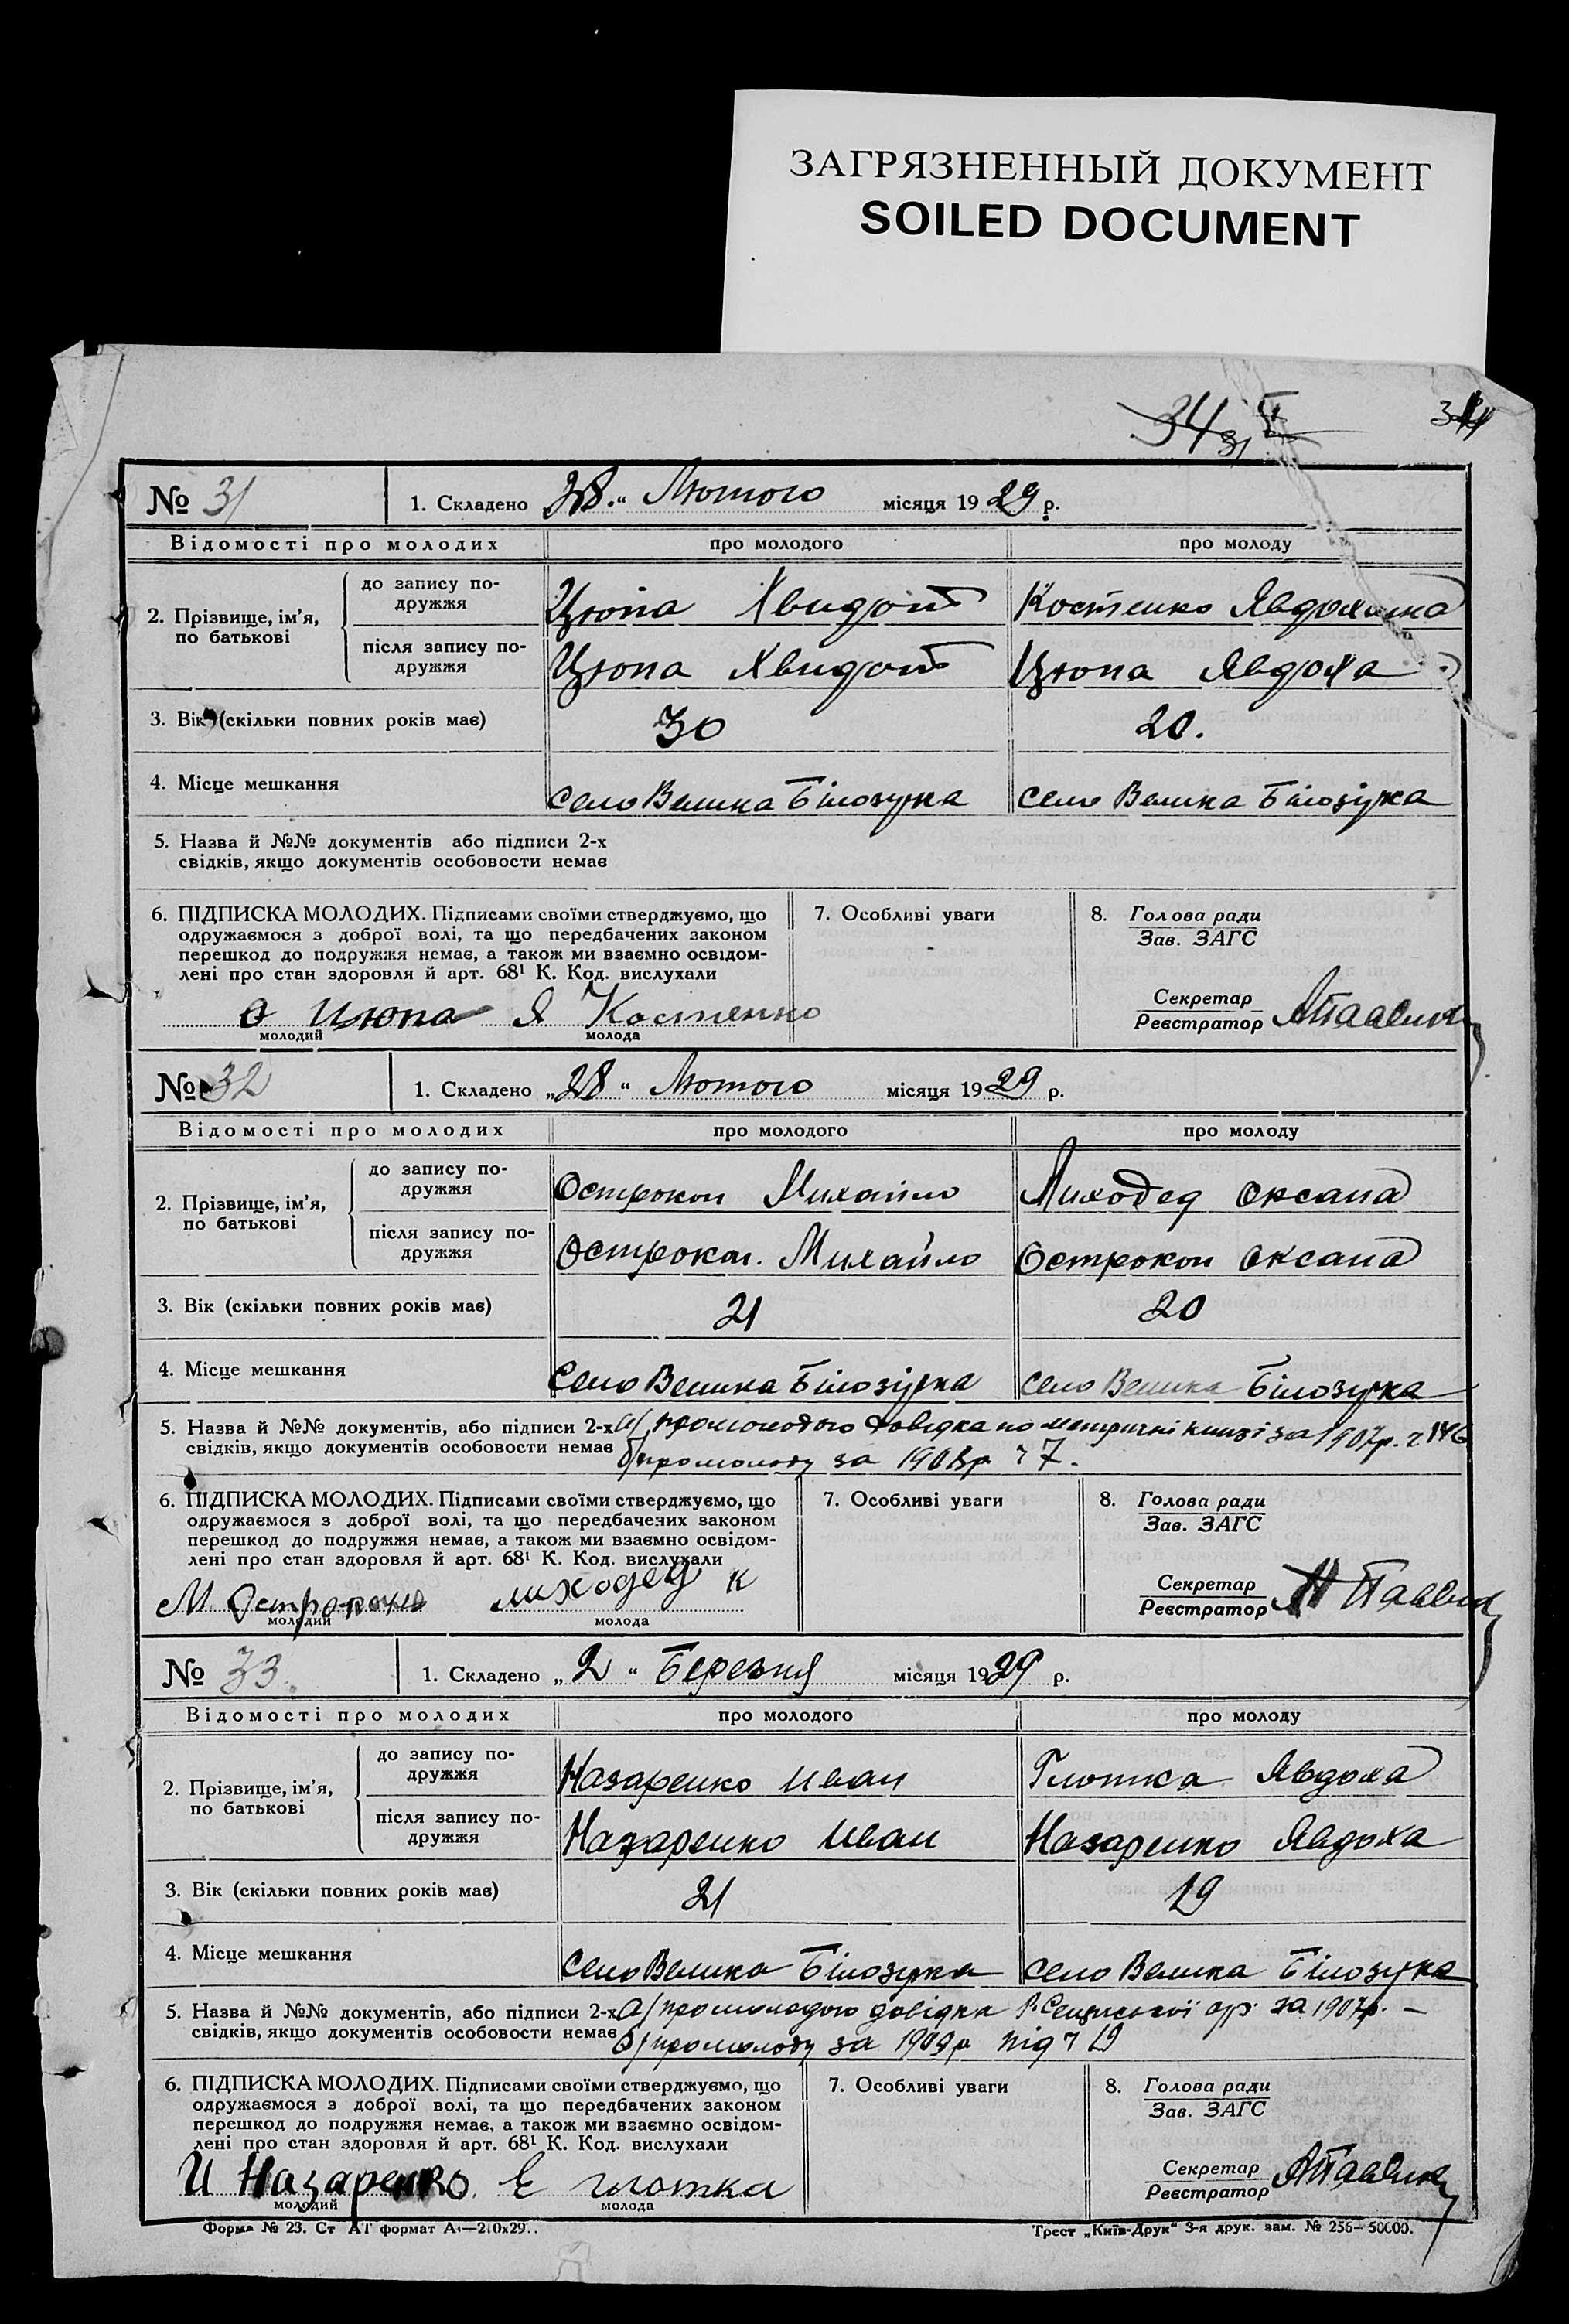 ЗАГРЯЗНЕННЫЙ ДОКУМЕНТ
SOILED DOCUMENT
34
№ 31 1. Складено 28 „ Лютого місяця 1929 р.
Відомості про молодих про молодого про молоду
2. Прізвище, ім’я, по батькові
до запису подружжя Цюпа Хвидот Костенко Явдокина
після запису подружжя Цюпа Хвидот Цюпа Явдоха
3. Вік (скільки повних років має) 30 20.
4. Місце мешкання село Велика Білозурка село Велика Білозірка
5. Назва й №№ документів або підписи 2-х
свідків, якщо документів особовости немає
6. ПІДПИСКА МОЛОДИХ. Підписами своїми стверджуємо, що 7. Особливі уваги 8. Голова ради
одружаємося з доброї волі, та що передбачених законом Зав. ЗАГС
перешкод до подружжя немає, а також ми взаємно освідом-
лені про стан здоровля й арт. 68¹ К. Код. вислухали Секретар
Ѳ Цюпа Я Костенко Реєстратор
молодий молода
№ 32 1. Складено „28“ Лютого місяця 1929 р.
Відомості про молодих про молодого про молоду
2. Прізвище, ім’я, по батькові
до запису подружжя Острокон Михайло Лиходед Оксана
після запису подружжя Острокон. Михайло Острокон Оксана
3. Вік (скільки повних років має) 21 20
4. Місце мешкання Село Велика Білозірка село Велика Білозурка
5. Назва й №№ документів, або підписи 2-х а/ про молодого довідка по метричні книзі за 1907р. ч 146
свідків, якщо документів особовости немає б/ про молоду за 1908р ч 7.
6. ПІДПИСКА МОЛОДИХ. Підписами своїми стверджуємо, що 7. Особливі уваги 8. Голова ради
одружаємося з доброї волі, та що передбачених законом Зав. ЗАГС
перешкод до подружжя немає, а також ми взаємно освідом-
лені про стан здоровля й арт. 68¹ К. Код. вислухали Секретар
М. лиходед к Реєстратор
молодий молода
№ 33. 1. Складено „2“ Березня місяця 1929 р.
Відомості про молодих про молодого про молоду
2. Прізвище, ім’я, по батькові
до запису подружжя Назаренко Иван Глотка Явдоха
після запису подружжя Назаренко Иван Назаренко Явдоха
3. Вік (скільки повних років має) 21 19
4. Місце мешкання село Велика Білозурка село Велика Білозурка
5. Назва й №№ документів, або підписи 2-х а/ про молодого довідка за 1907р. —
свідків, якщо документів особовости немає б/ про молоду за 1909р під ч 19
6. ПІДПИСКА МОЛОДИХ. Підписами своїми стверджуємо, що 7. Особливі уваги 8. Голова ради
одружаємося з доброї волі, та що передбачених законом Зав. ЗАГС
перешкод до подружжя немає, а також ми взаємно освідом-
лені про стан здоровля й арт. 68¹ К. Код. вислухали Секретар
И Назаренко. Е глотка Реєстратор
молодий молода
Форма № 23. Ст АТ формат А₄—210х29.. Трест „Київ-Друк“ 3-я друк. зам. № 256—50000.